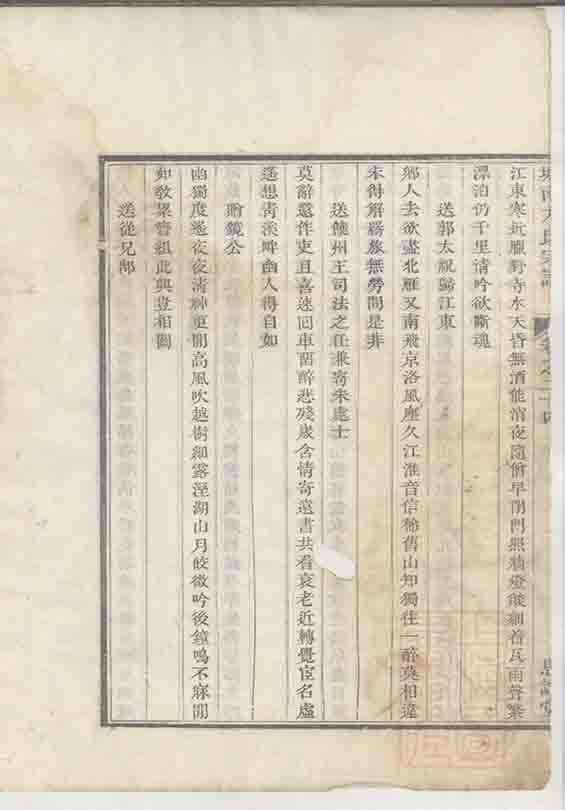 南方氏宗譜 卷之二十四
江東寒近臘野寺水天昏無酒能消夜隨僧早閉門照牆燈燄細着瓦雨聲繁
漂泊仍千里清吟欲斷魂
送郭太祝歸江東
鄉人去欲盡北雁又南飛京洛風塵久江淮音信稀舊山知獨往一醉莫相違
未得解羇旅無勞問是非
送饒州王司法之任兼寄朱處士
莫辭還作吏且喜速回車留醉悲殘歲含情寄遠書共看衰老近轉覺宦名虛
遙想青溪畔幽人得自如
贈鏡公
幽獨度遙夜夜清神更閒高風吹越樹細露溼湖山月皎微吟後鐘鳴不寐間
如教累簪組此興豈相關
送從兄郜